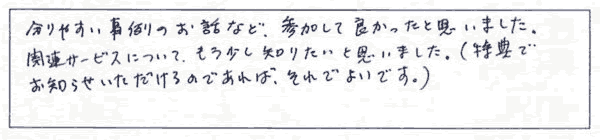 分りやすい事例のお話など、参加して良かったと思いました。
関連サービスについて、もう少し知りたいと思いました。(特典で
お知らせいただけるのであれば、それでよいです。)